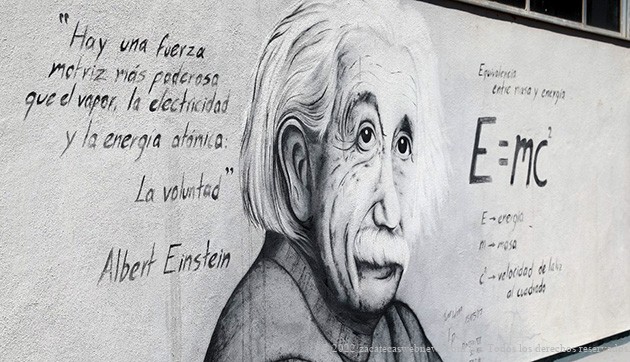 "Hay una fuerza
motriz más poderosa
que el vapor, la electricidad
y la energía atómica:
La voluntad"
Albert Einstein
Equivalencia
entre masa y energía
E=mc²
E→energía
m→masa
c²→velocidad de la luz
al cuadrado
2022 zacatecasweb Todos los derechos